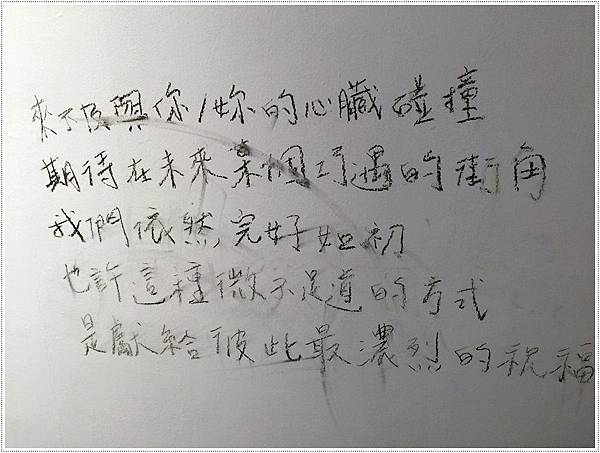 來不及與你/妳的心臟碰撞
期待在未來某個巧遇的街角
我們依然完好如初
也許這種微不足道的方式
是獻給彼此最濃烈的祝福